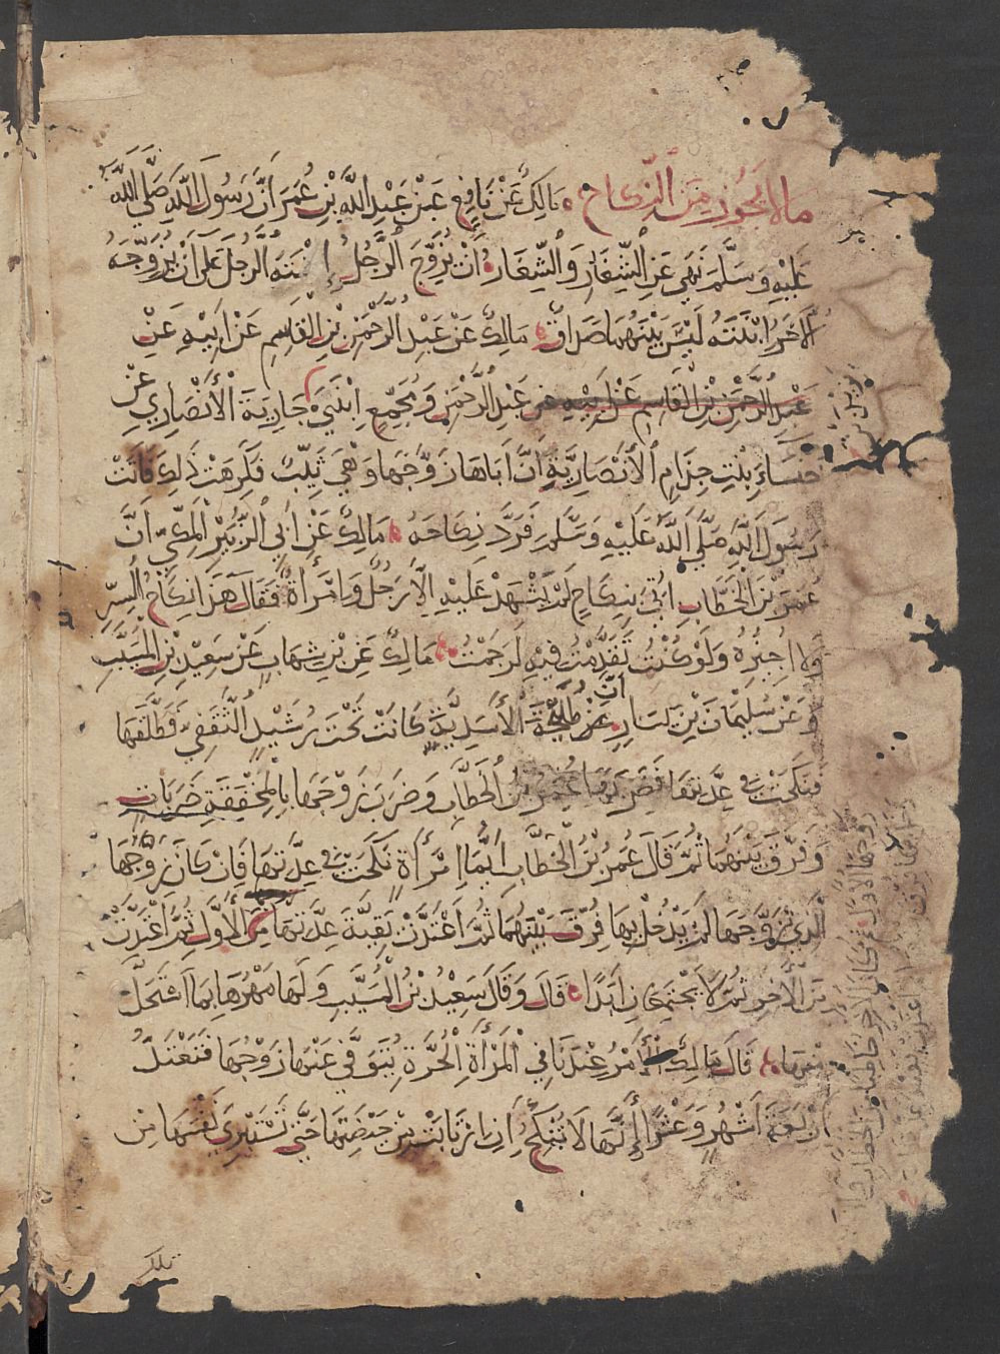 ما لا يجوز من النكاح مالك عن نافع عن عبد الله بن عمر أن رسول الله صلى الله
عليه وسلم نهى عن الشغار والشغار أن يزوج الرجل ابنته الرجل على أن يزوجه
الآخر ابنته ليس بينهما صداق مالك عن عبد الرحمن بن القاسم عن أبيه عن
عبد الرحمن بن القاسم عن أبيه عن عبد الرحمن ومجمع ابني جارية الأنصاري عن
خنساء بنت خزام الأنصارية أن أباها زوجها وهي ثيب فكرهت ذلك فأتت
رسول الله صلى الله عليه وسلم فرد نكاحه مالك عن أبي الزبير المكي أن
عمر بن الخطاب أتي بنكاح لم يشهد عليه إلا رجل وامرأة فقال هذا نكاح السر
ولا أجيزه ولو كنت تقدمت فيه لرجمت مالك عن بن شهاب عن سعيد بن المسيب
وعن سليمان بن يسار أن طليحة الأسدية كانت تحت رشيد الثقفي فطلقها
فنكحت في عدتها فضربها عمر بن الخطاب وضرب زوجها بالمخفقة ضربات
وفرق بينهما ثم قال عمر بن الخطاب أيما امرأة نكحت في عدتها فإن كان زوجها
الذي تزوجها لم يدخل بها فرق بينهما ثم اعتدت بقية عدتها من الأول ثم اعتدت
من الآخر ثم لا يجتمعان أبدا قال وقال سعيد بن المسيب ولها مهرها بما استحل
منها قال مالك الأمر عندنا في المرأة الحرة يتوفى عنها زوجها فتعتد
أربعة أشهر وعشرا إنها لا تنكح إن ارتابت من حيضتها حتى تستبري نفسها من
تلك